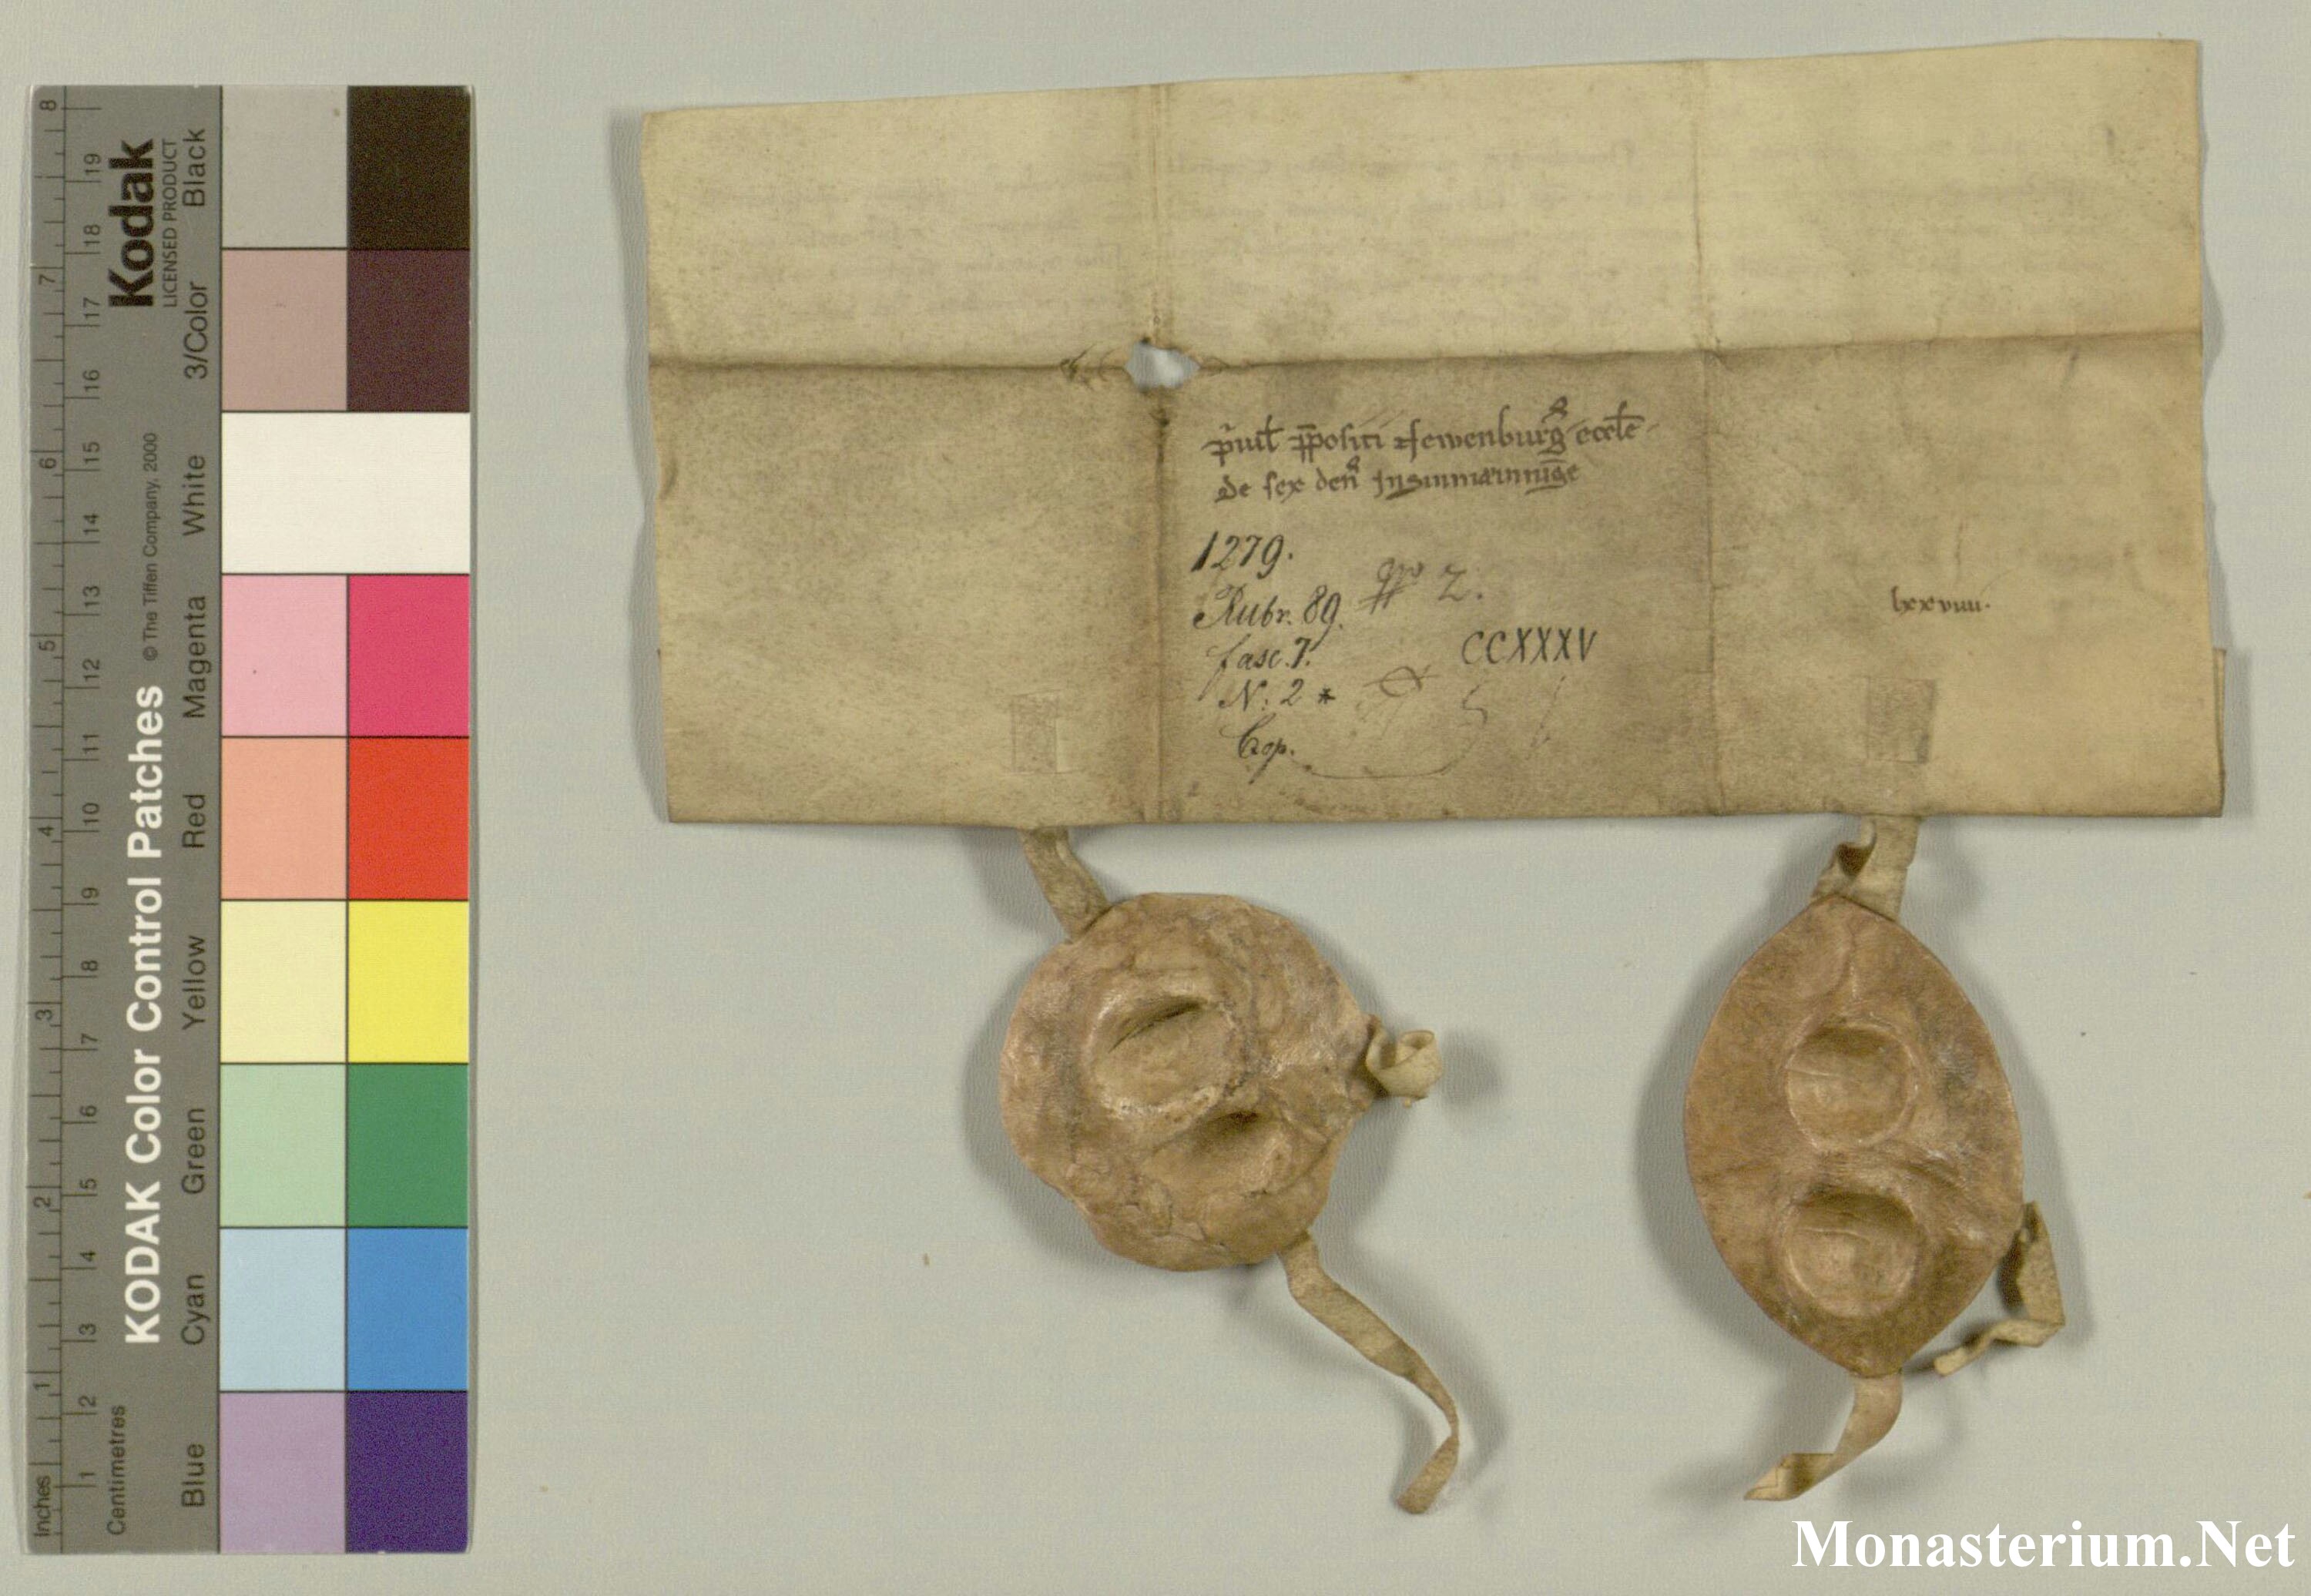 p̄uil p̄positi Newenburg̃ eccl̄e
de sex den̄ Jn Smmarnnīge
1279.
Rubr. 89. 2.
fasc. 7. CCXXXV
N: 2 *
Cop.
lxxviiii.
KODAK Color Control Patches
© The Tiffen Company, 2000
Kodak
LICENSED PRODUCT
Inches 1 2 3 4 5 6 7 8
Centimetres 1 2 3 4 5 6 7 8 9 10 11 12 13 14 15 16 17 18 19
Blue Cyan Green Yellow Red Magenta White 3/Color Black
Monasterium.Net